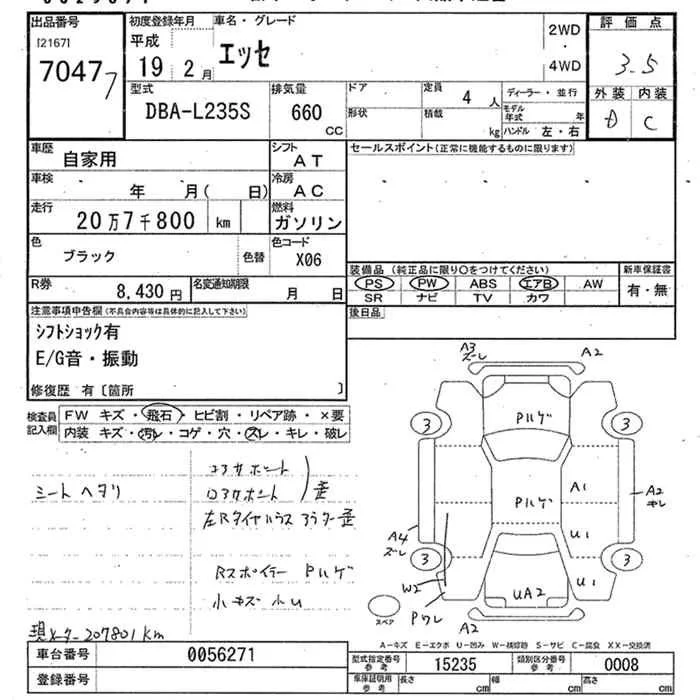 出品番号 初度登録年月 車名・グレード 2WD・4WD 評価点
[2167]
7047 7 平成 19 2月 エッセ 3.5
型式 排気量 ドア 定員 4 人 ディーラー・並行 外装 内装
DBA-L235S 660 CC 形状 積載 kg モデル年式 年 ハンドル 左・右 D C
車歴 自家用 シフト AT セールスポイント(正常に機能するものに限ります)
車検 年 月( 日) 冷房 AC
走行 20万7千800 km 燃料 ガソリン
色 ブラック 色替 色コード X06
装備品(純正品に限り○をつけてください) 新車保証書
PS PW ABS エアB AW 有・無
SR ナビ TV カワ
R券 8,430円 名変通知期限 月 日
後日品
注意事項申告欄(不具合内容等は具体的に記入して下さい)
シフトショック有
E/G音・振動
修復歴 有〔箇所 〕
検査員記入欄 FW キズ・飛石・ヒビ割・リペア跡・×要
内装 キズ・汚レ・コゲ・穴・スレ・キレ・破レ
シートヘタリ
コアサポート
ロアサポート 歪
左Rタイヤハウス アウター歪
Rスポイラー Pハゲ
小キズ 小U
現メーター207801km
A3 ズレ A2
3 3
Pハゲ
Pハゲ
A1
A2 キレ
A4 ズレ
U1
3 3
W2 UA2 U1
Pワレ
A2
スペア
A-キズ E-エクボ U-凹み W-補修跡 S-サビ C-腐食 XX-交換済
車台番号 0056271
型式指定番号 参考 15235 類別区分番号 参考 0008
登録番号
車庫証明用 参考 長さ cm 幅 cm 高さ cm